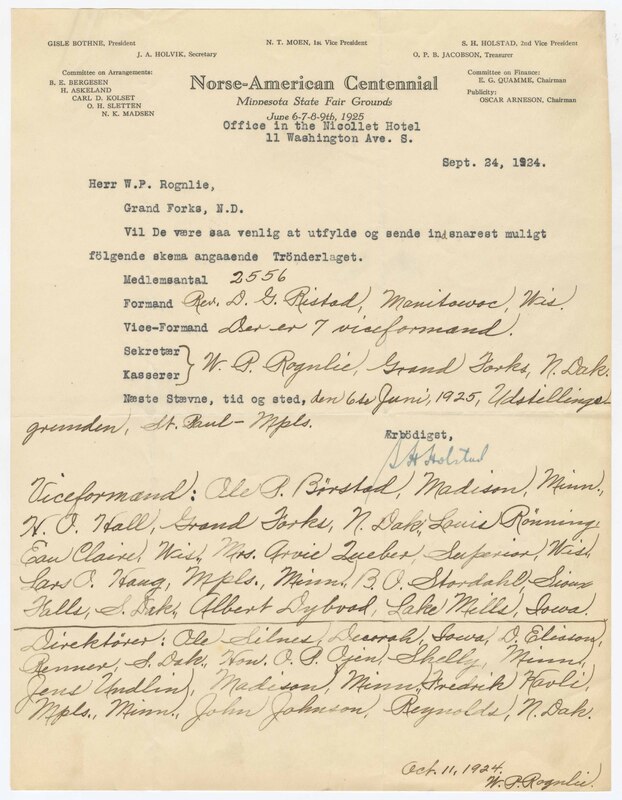 GISLE BOTHNE, President
N. T. MOEN, 1st. Vice President
S. H. HOLSTAD, 2nd Vice President
J. A. HOLVIK, Secretary
O. P. B. JACOBSON, Treasurer
Committee on Arrangements:
B. E. BERGESEN
H. ASKELAND
CARL D. KOLSET
O. H. SLETTEN
N. K. MADSEN
Norse-American Centennial
Minnesota State Fair Grounds
June 6-7-8-9th, 1925
Committee on Finance:
E. G. QUAMME, Chairman
Publicity:
OSCAR ARNESON, Chairman
Office in the Nicollet Hotel
11 Washington Ave. S.
Sept. 24, 1924.
Herr W.P. Rognlie,
Grand Forks, N.D.
Vil De være saa venlig at utfylde og sende ind snarest muligt
fölgende skema angaaende Trönderlaget.
Medlemsantal 2556
Formand Rev. D. G. Ristad, Manitowoc, Wis.
Vice-Formand Der er 7 viceformand.
Sekretær
Kasserer } W. P. Rognlie, Grand Forks, N. Dak.
Næste Stævne, tid og sted, den 6te Juni, 1925, Udstillings-
grunden, St. Paul - Mpls.
Ærbödigst,
S H Holstad
Viceformænd: Ole P. Börstad, Madison, Minn.,
H. O. Hall, Grand Forks, N. Dak, Louis Rönning,
Eau Claire, Wis., Mrs. Arvic Queber, Superior, Wis,
Lars O. Haug, Mpls., Minn, B. O. Stordahl, Sioux
Falls, S. Dak., Albert Dybvad, Lake Mills, Iowa.
Direktörer: Ole Silnes, Decorah, Iowa, D. Elisson,
Renner, S. Dak., Hon. O. P. Ojen, Shelly, Minn,
Jens Undlin, Madison, Minn., Fredrik Kavli,
Mpls., Minn., John Johnson, Reynolds, N. Dak.
Oct. 11, 1924.
W. P. Rognlie.